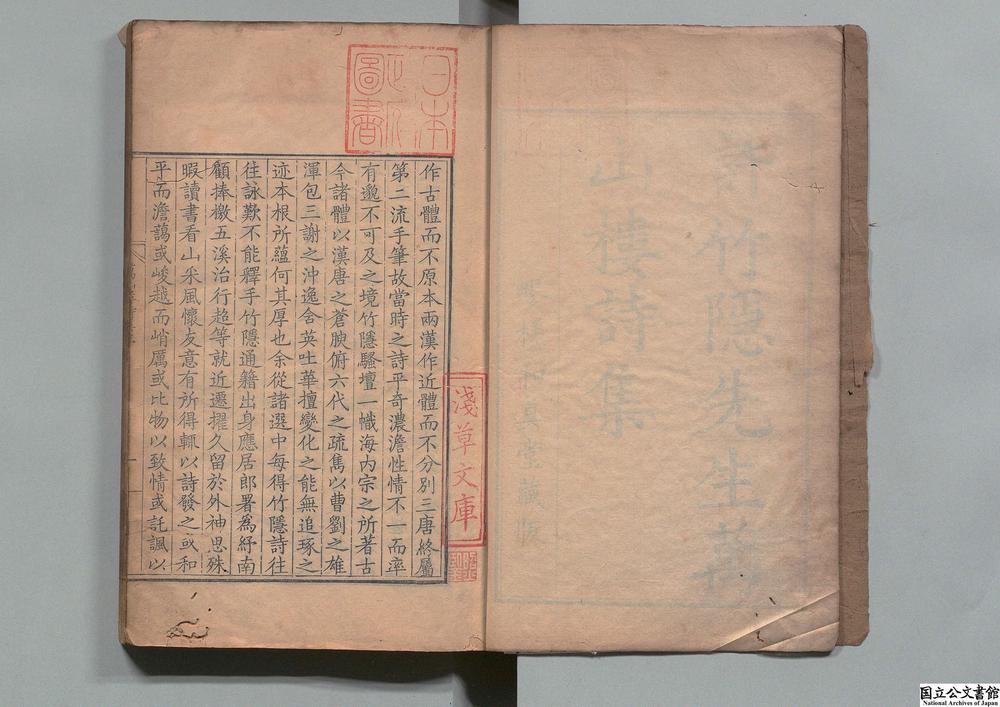 許竹隱先生萬
山樓詩集
堂藏版
日本
圖書
作古體而不原本兩漢作近體而不分別三唐終屬
第二流手筆故當時之詩平奇濃澹性情不一而率
有邈不可及之境竹隱騷壇一幟海內宗之所著古
今諸體以漢唐之蒼腴俯六代之疏雋以曹劉之雄
渾包三謝之沖逸含英吐華擅變化之能無追琢之
迹本根所蘊何其厚也余從諸選中每得竹隱詩徃
徃詠歎不能釋手竹隱通籍出身應居郎署為紆南
顧捧檄五溪治行超等就近遷擢久留於外神思殊
暇讀書看山采風懷友意有所得輒以詩發之或和
平而澹蕩或峻越而峭厲或比物以致情或託諷以
淺草文庫
国立公文書館
National Archives of Japan